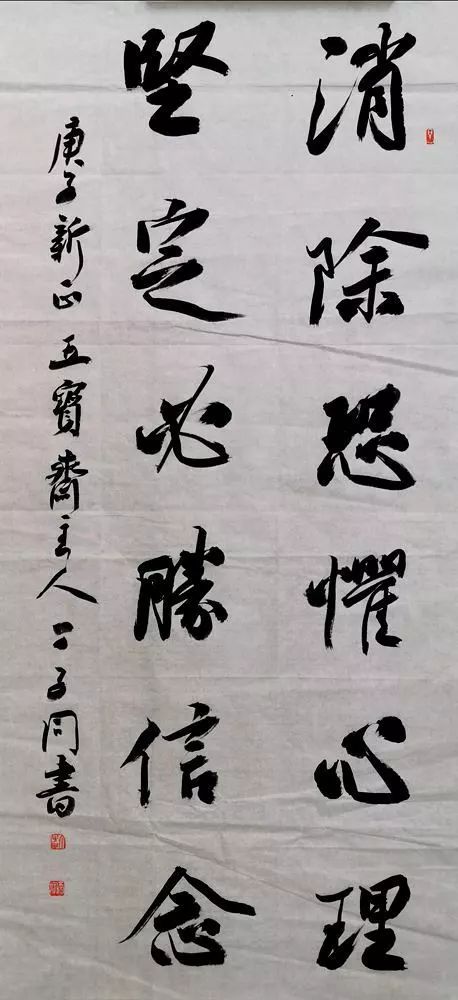 消除恐懼心理
堅定必勝信念
庚子新正五寶齋主人子同書